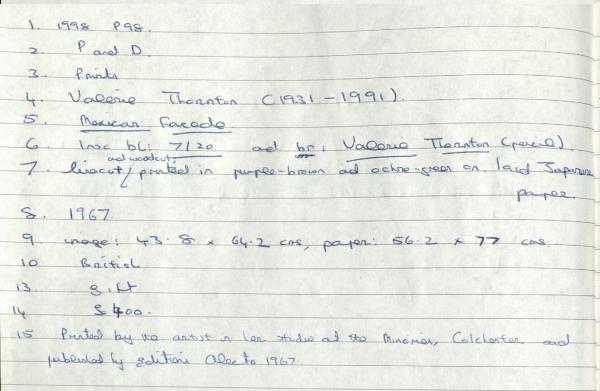 1. 1998 P98.
2. P and D.
3. Prints
4. Valerie Thornton (1931-1991).
5. Mexican Facade
6. Insc bl: 7/20 and br: Valerie Thornton (pencil).
and woodcut
7. linocut / printed in purple-brown and ochre-green on laid Japanese
paper.
8. 1967
9. image: 43.8 x 64.2 cms, paper: 56.2 x 77 cms.
10 British
13 gift
14 £400.
15 Printed by the artist in her studio at the Minories, Colchester and
published by Editions Alecto 1967